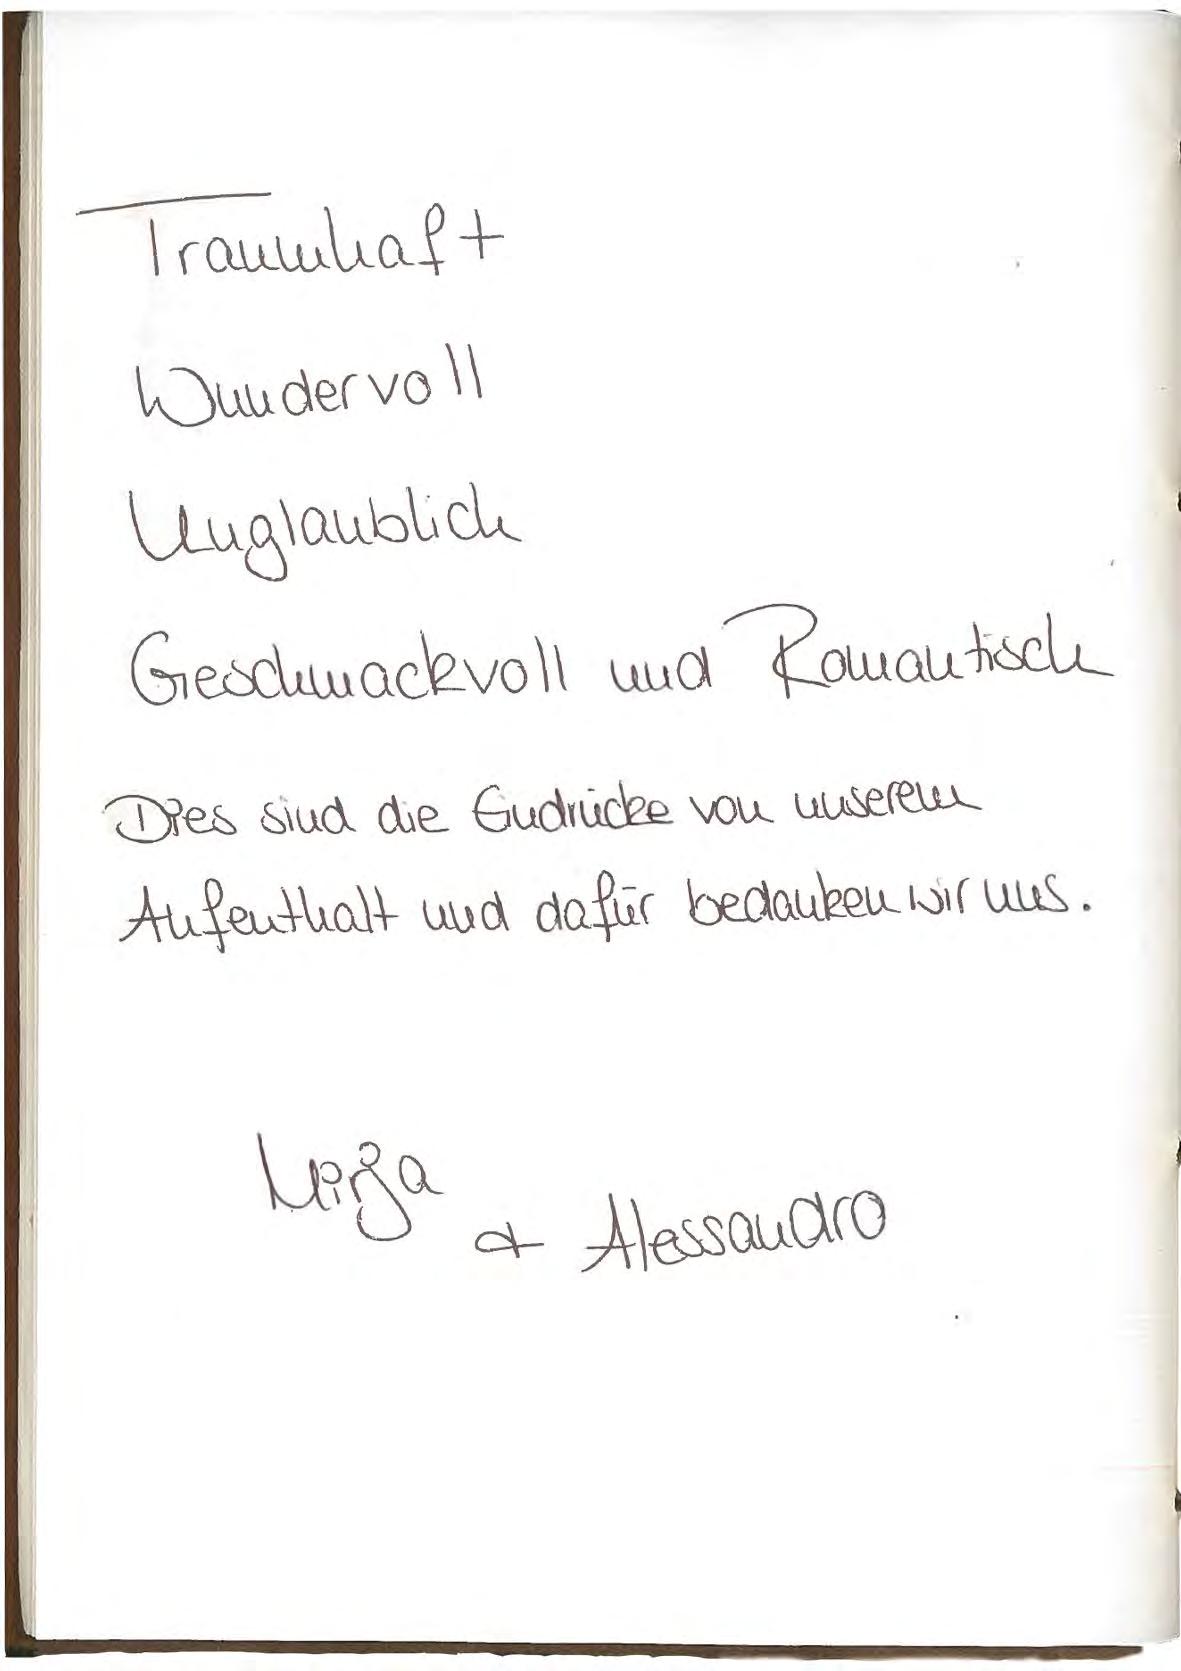 Traumhaft
Wundervoll
Unglaublich
Geschmackvoll und Romantisch
Dies sind die Eindrücke von unserem
Aufenthalt und dafür bedanken wir uns.
Mirja
& Alessandro